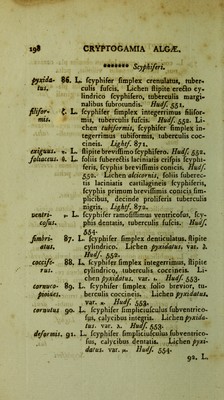 198 CRYPTOGAMIA ALGÆ.
******* Scyphiferi.
pyxida- 86. L. scyphifer simplex crenulatus, tuber-
tus. culis fuscis. Lichen stipite erecto cy-
lindrico scyphifero, tuberculis margi-
nalibus subrotundis. Huds. 551.
filifor- ζ. L. scyphifer simplex integerrimus filifor-
mis. mis, tuberculis fuscis. Huds. 552. Li-
chen tubiformis, scyphifer simplex in-
tegerrimus tubiformis, tuberculis coc-
cineis. Lightf. 871.
exiguus. L. stipite brevissimo scyphifero. Huds. 552.
foliaceus. θ. L. foliis suberectis laciniatis crispis scyphi-
feris, scyphis brevissimis concis. Huds.
552. Lichen alcicornis, foliis suberec-
tis laciniatis cartilagineis scyphiferis,
scyphis primum brevissimis concis sim-
plicibus, decinde proliferis tuberculis
nigris. Lightf. 872.
ventri- L. scyphifer ramosissimus ventricosus, scy-
cosus. phis dentatis, tuberculis fuscis. Huds.
554.
fimbri- 87. L. scyphifer simplex denticulatus, stipite
atus. cylindrico. Lichen pyxidatus. var. λ.
Huds. 552.
coccife- 88. L. scyphifer simplex integerrimus, stipite
rus. cylindrico, tuberculis coccineis. Li-
chen pyxidatus, var. Huds. 553.
cornuco- 89. L. scyphifer simplex folio brevior, tu-
pioides. berculis coccineis. Lichen pyxidatus,
var. Huds. 553.
cornutus 90. L. scyphifer simpliciusculus subventrico-
sus, calycibus integris. Lichen pyxida-
tus. var. λ. Huds. 553.
deformis. 91. L. scyphifer simpliciusculus subventrico-
sus, calycibus dentatis. Lichen pyxi-
datus. var. μ. Huds. 554.
92. L.